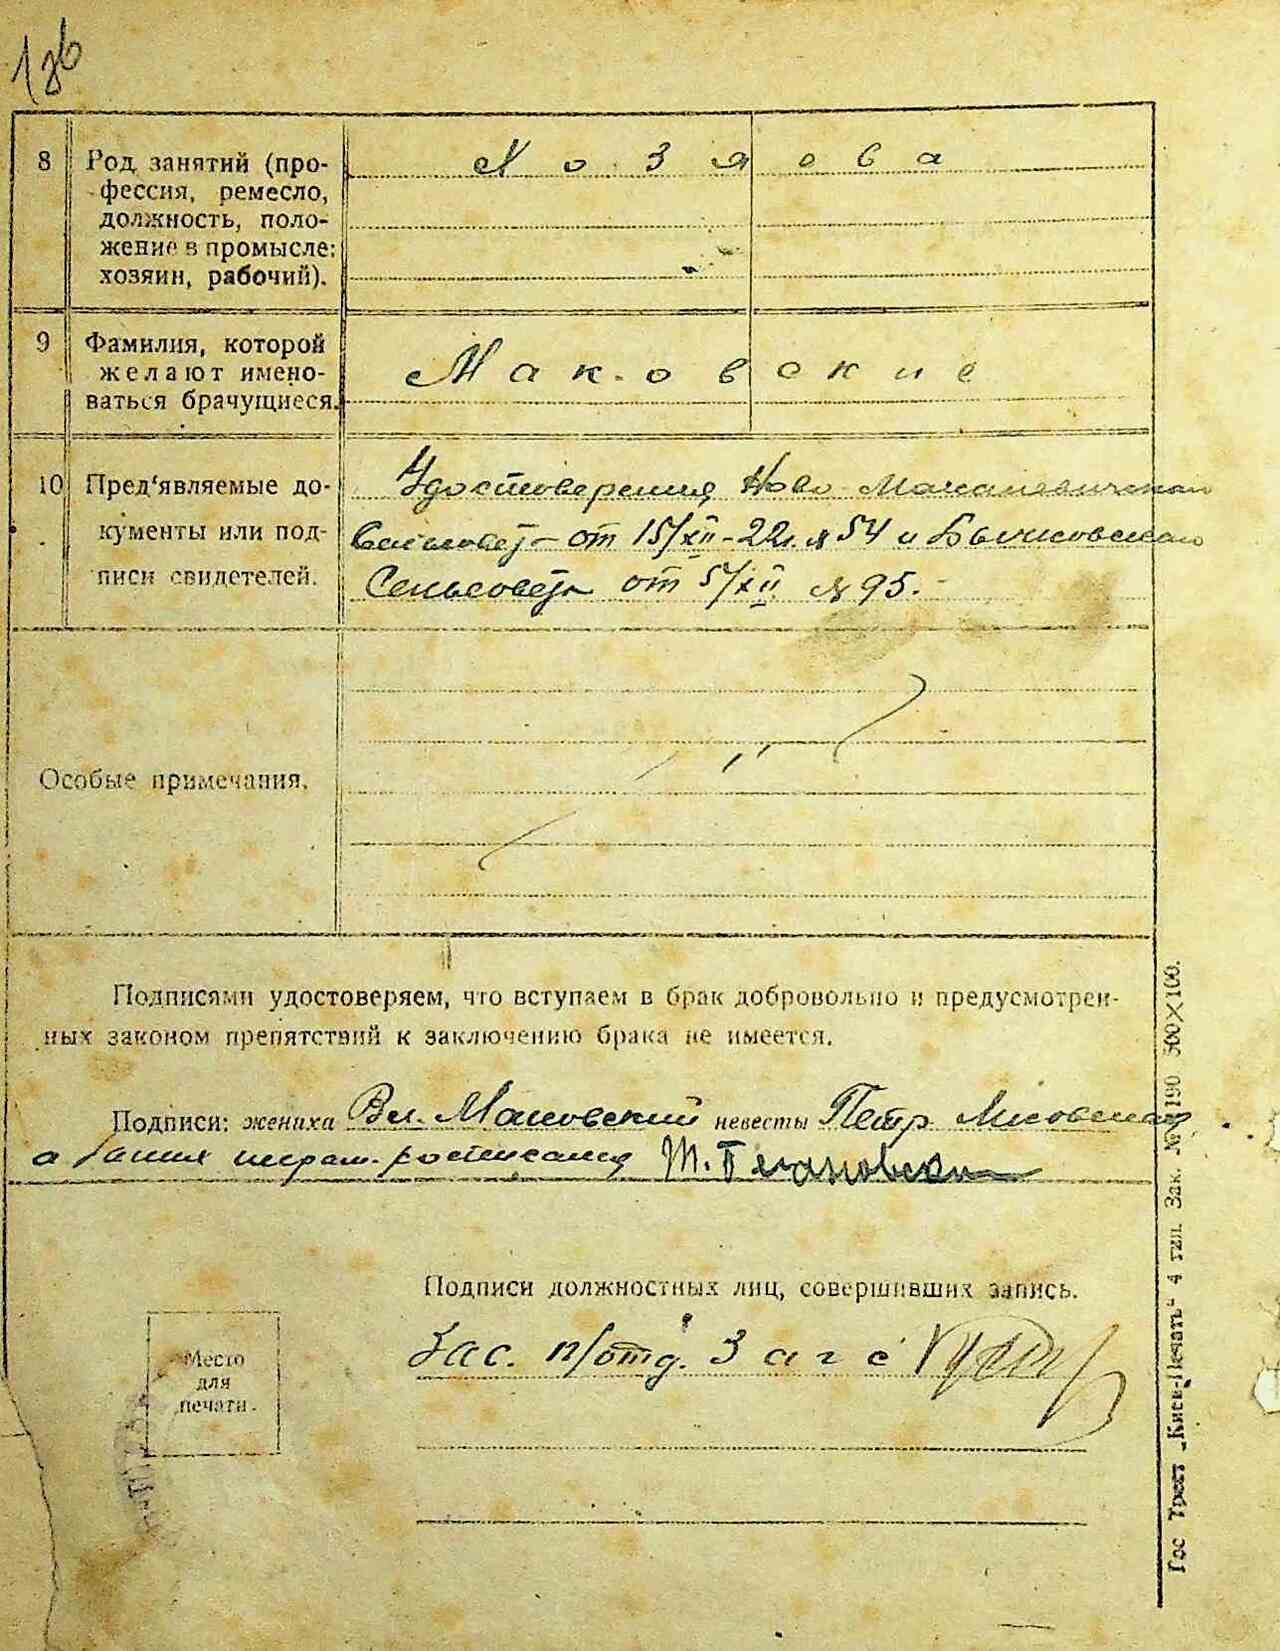 8 Род занятий (про-
фессия, ремесло,
должность, поло-
жение в промысле:
хозяин, рабочий).
Хозяева
9 Фамилия, которой
желают имено-
ваться брачущиеся.
Маковские
10 Пред'являемые до-
кументы или под-
писи свидетелей.
Удостоверения Ново
от 15/XII-22г. № 54 и
Сельсовета от 5/XII № 95.
Особые примечания.
Подписями удостоверяем, что вступаем в брак добровольно и предусмотрен-
ных законом препятствий к заключению брака не имеется.
Подписи: жениха Вл. Маковский невесты Петр. Лисовская
а
Подписи должностных лиц, совершивших запись.
Зас. п/отд. Загс
Место
для
печати.
Гос Трест „Киев-Печать“ 4 тип. Зак. № 4190 500×100.